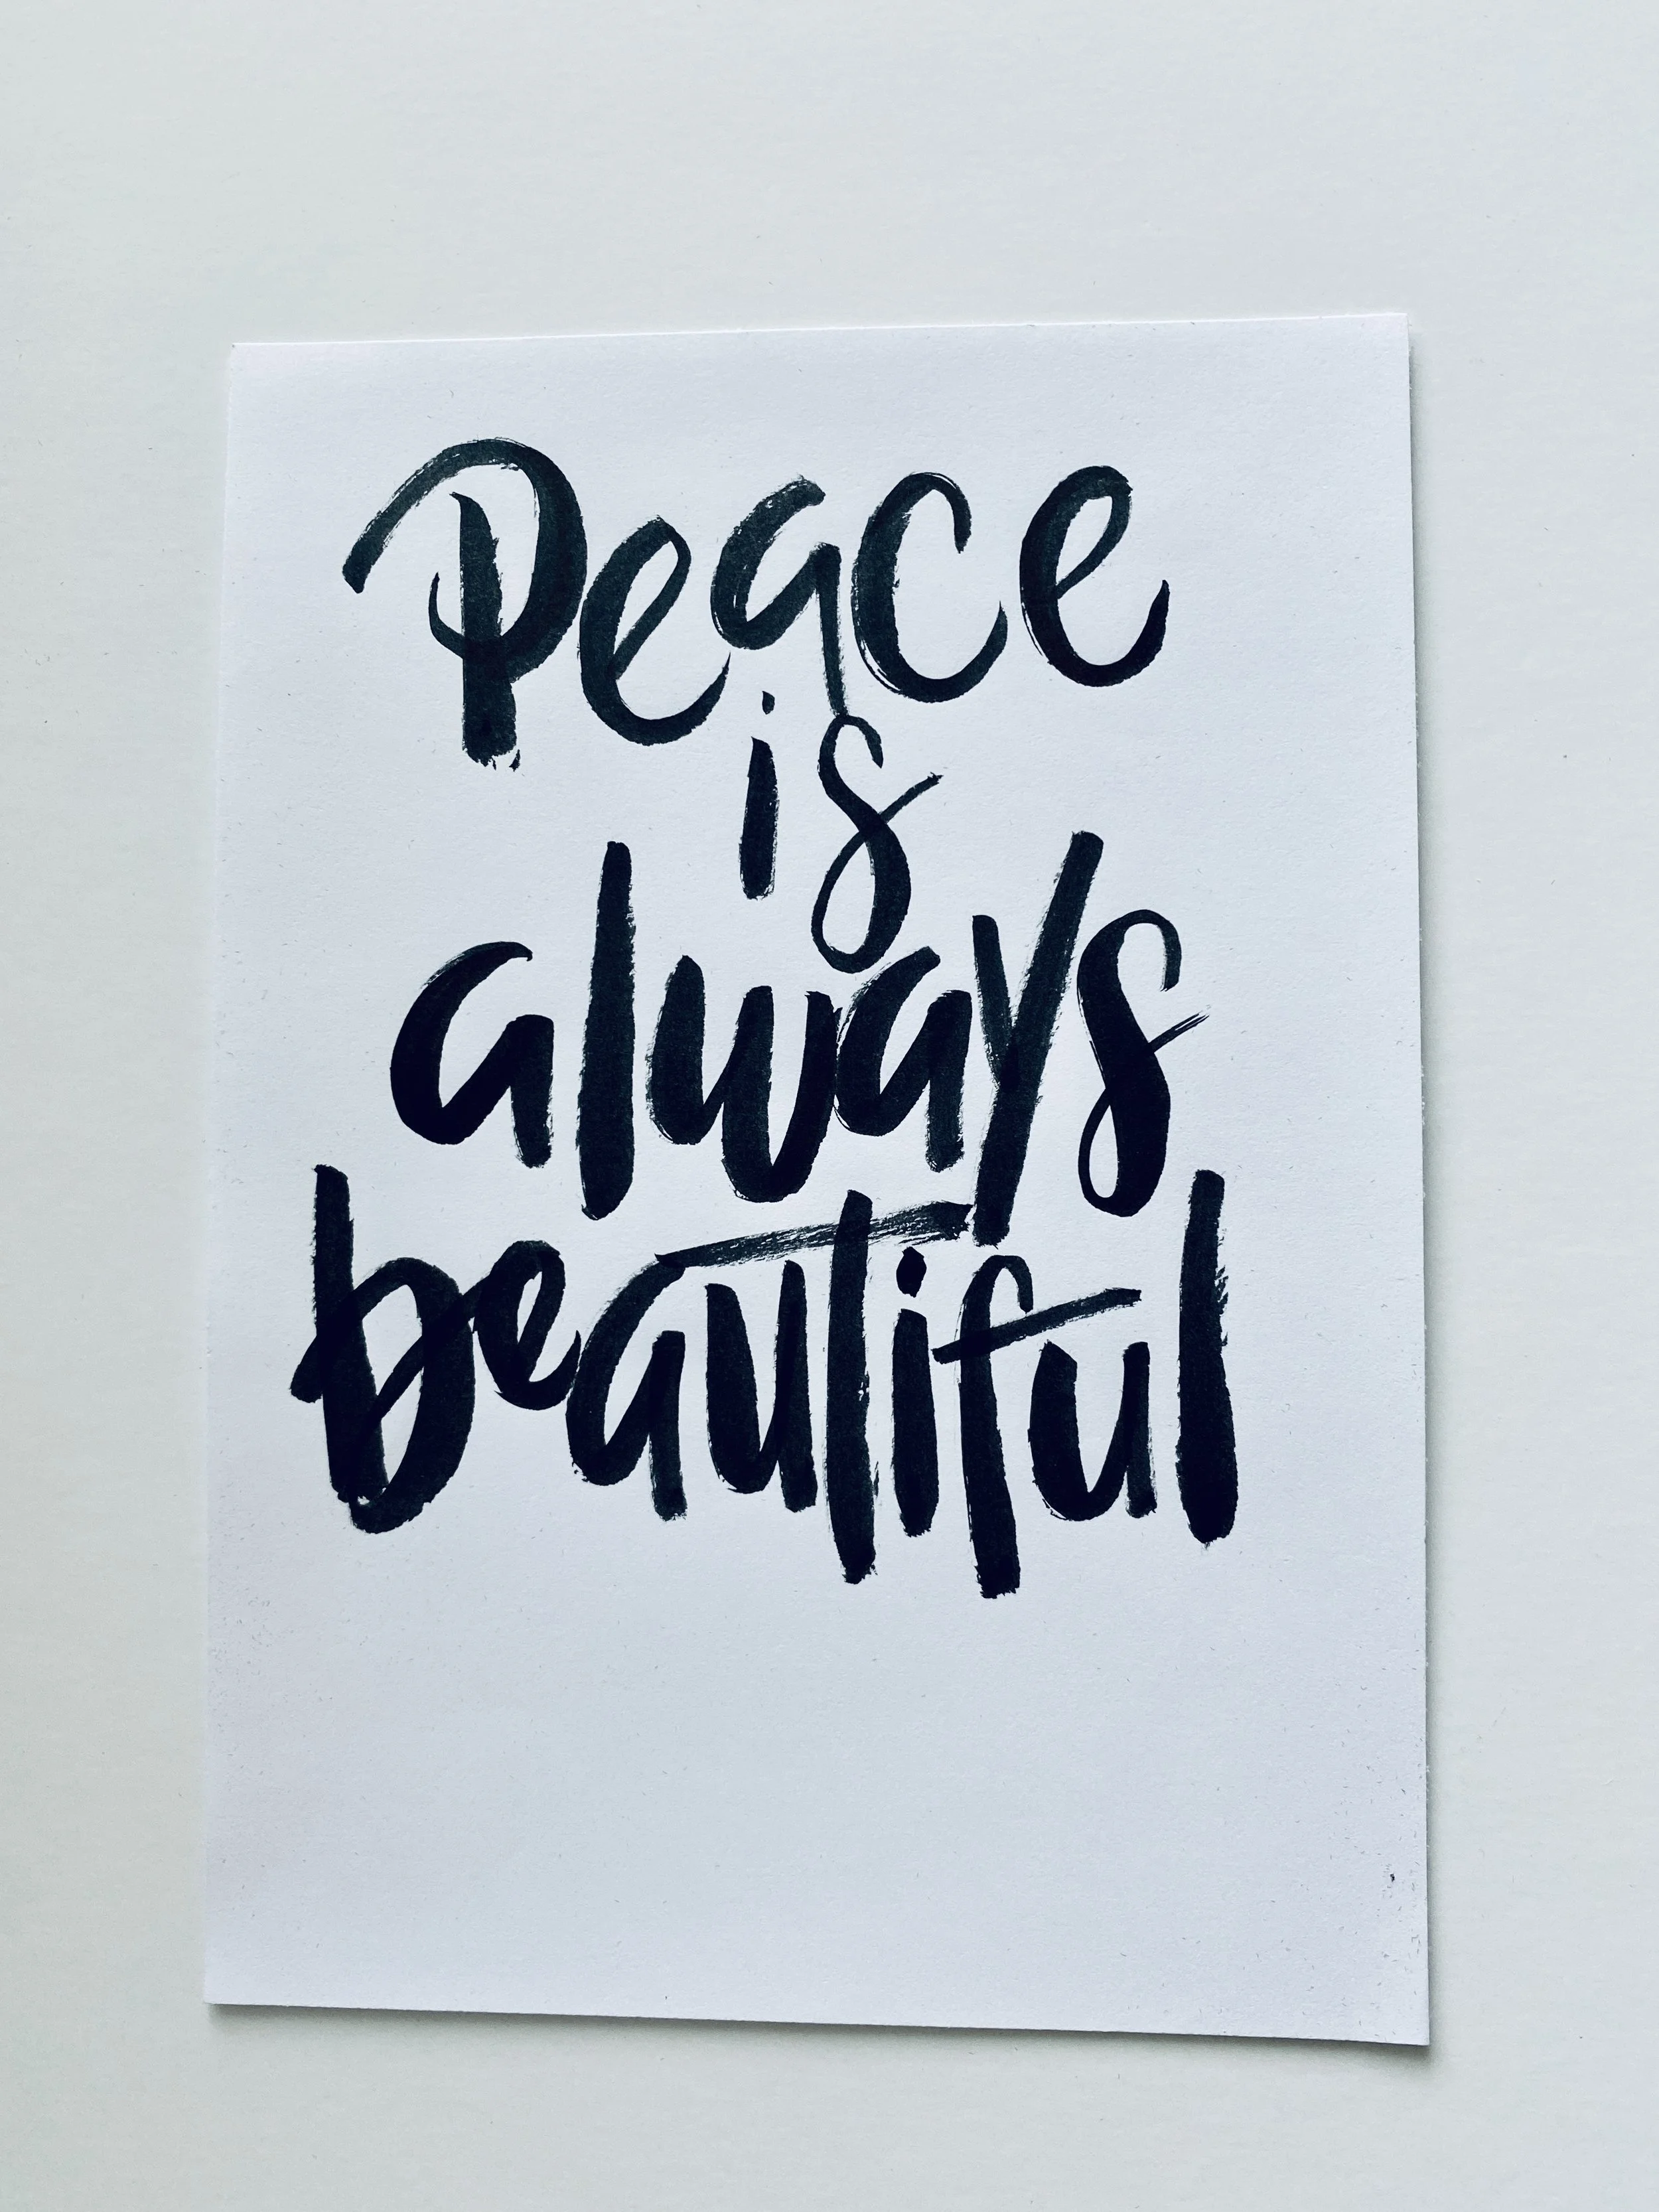 Peace
is
always
beautiful